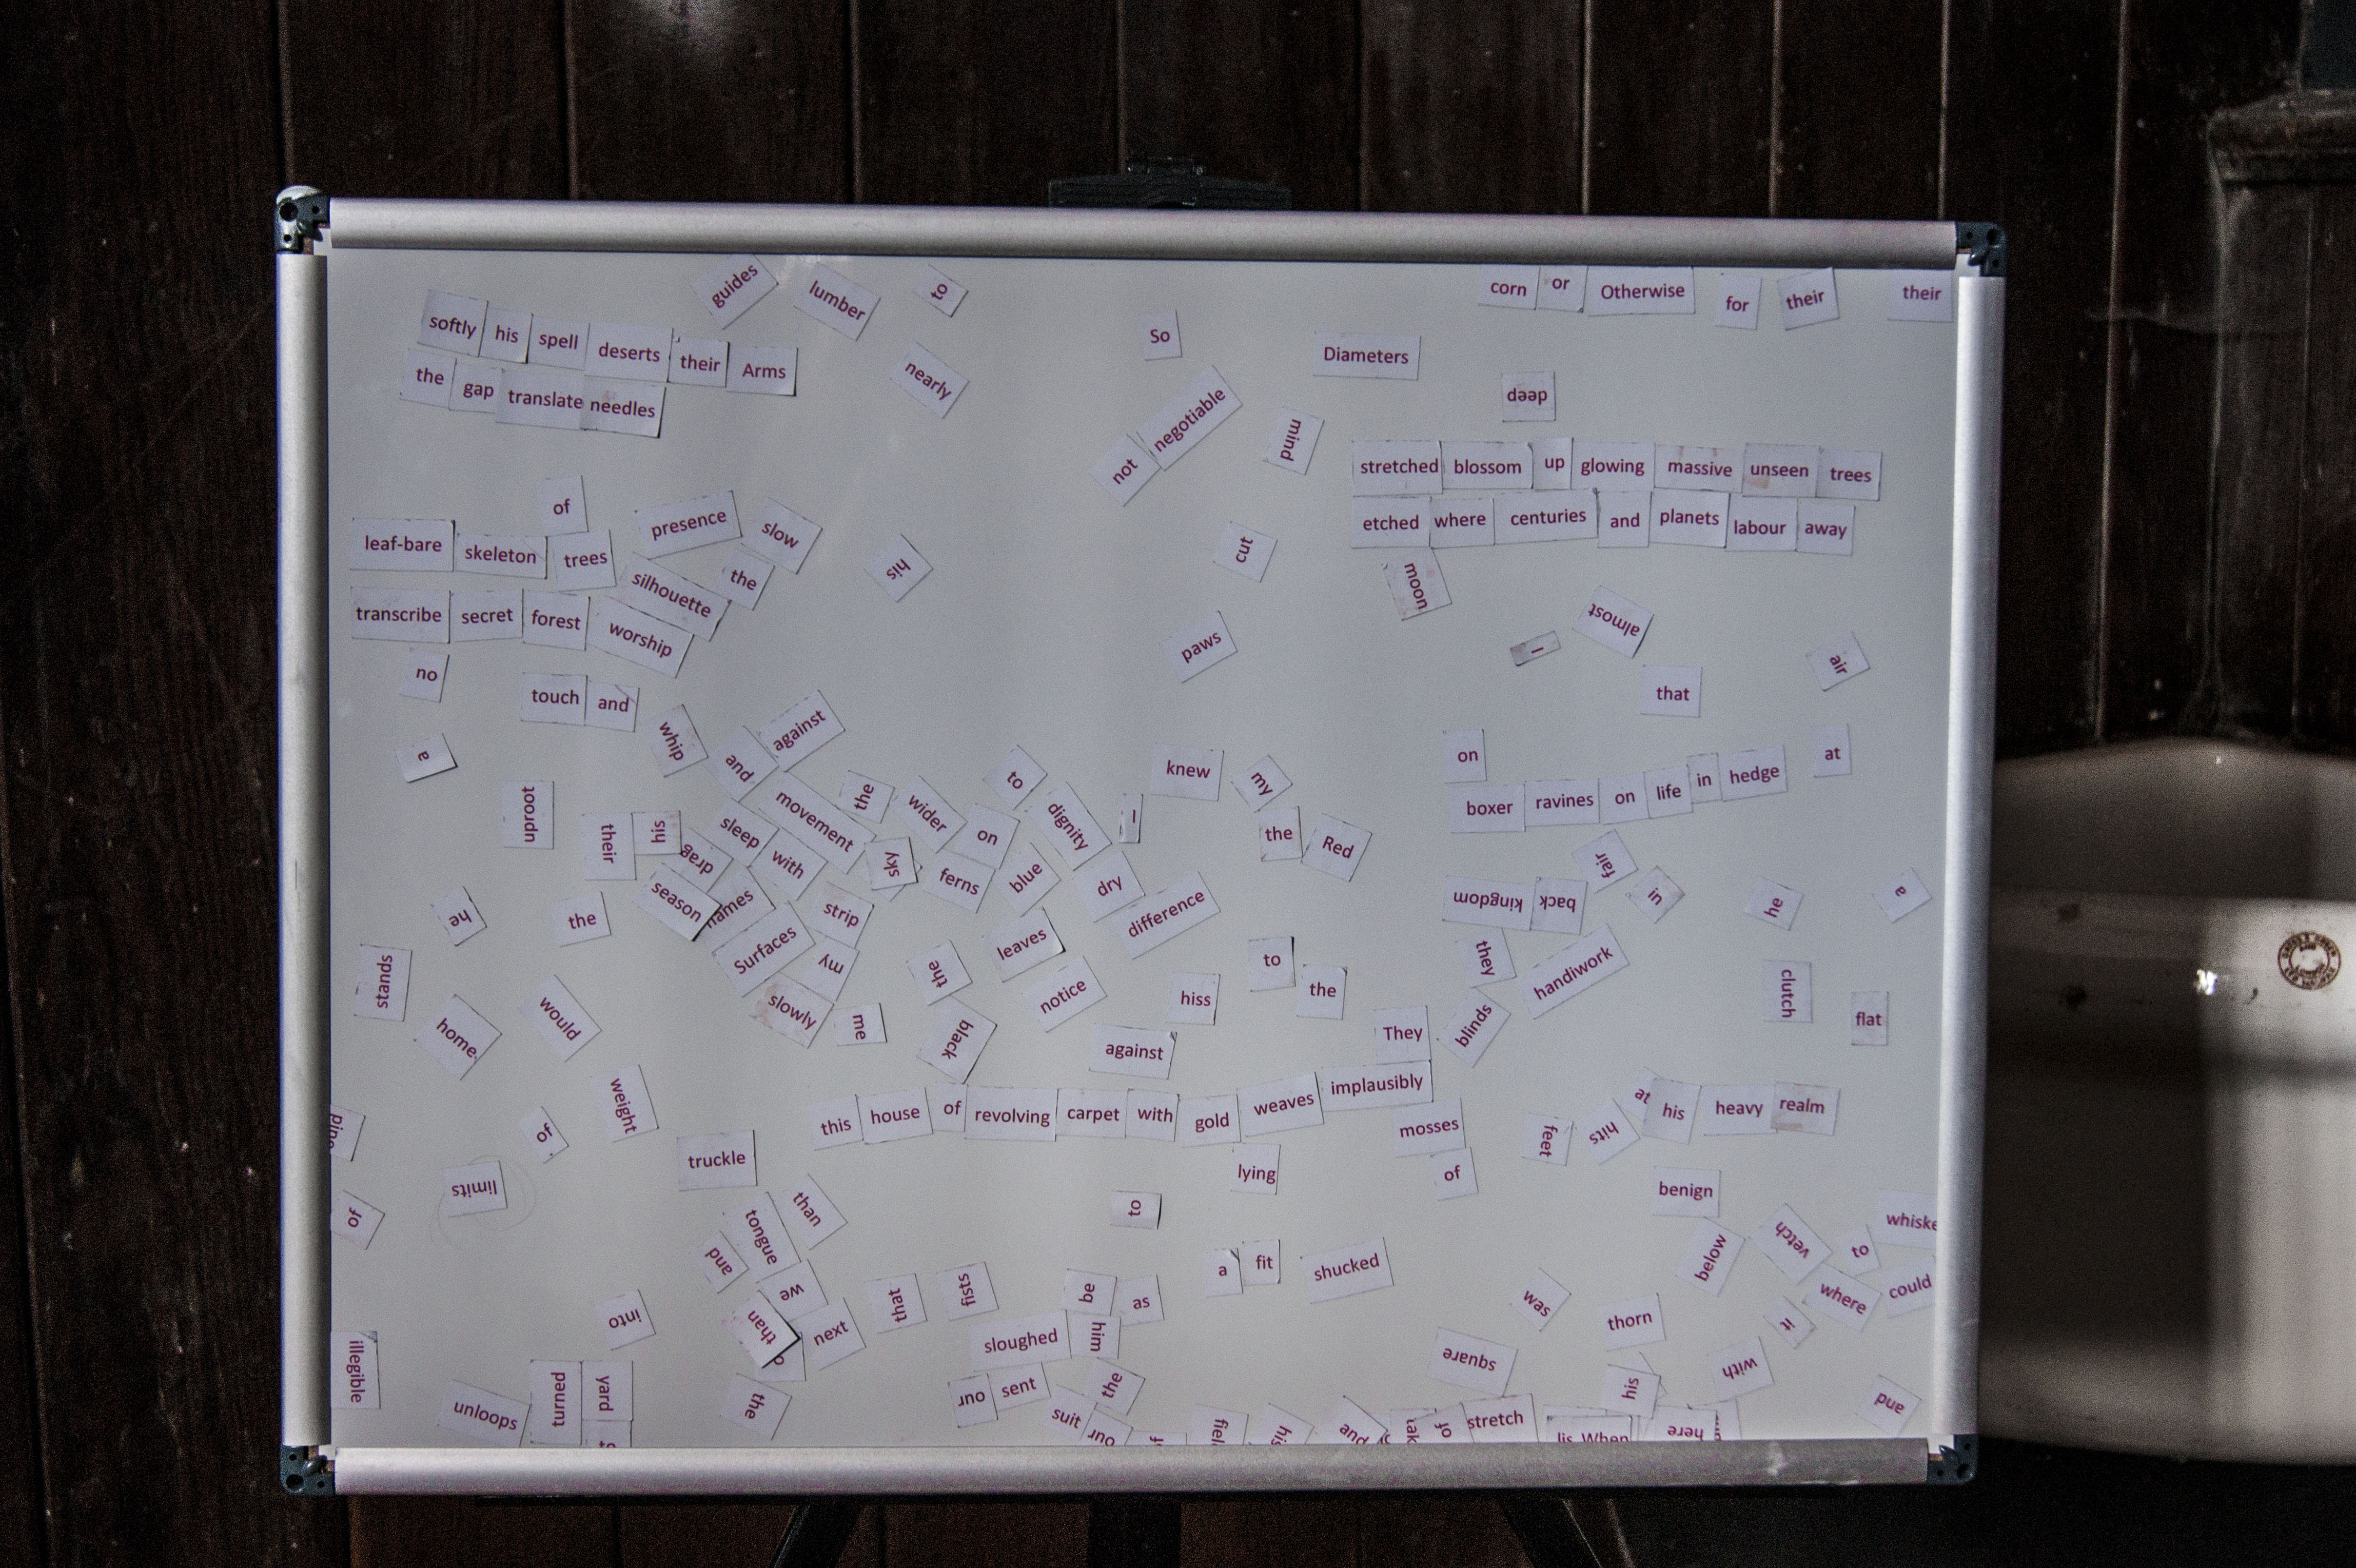 guides lumber to
corn or Otherwise for their their
softly his spell deserts their Arms
So
Diameters
the gap translate needles
nearly
deep
not negotiable
mind
stretched blossom up glowing massive unseen trees
of
presence slow
etched where centuries and planets labour away
leaf-bare skeleton trees
his
cut
silhouette the
moon
transcribe secret forest worship
almost
I
paws
air
no
that
touch and
whip
and against
a
on
at
knew my
to
boxer ravines on life in hedge
uproot
their his drag
sleep movement the wider on dignity I
with sky ferns blue dry difference
the Red
fair
kingdom back
in he a
he the
season names strip
Surfaces my
the leaves
they handiwork
stands
to the
clutch flat
home. would
slowly me
black notice hiss
against
They blinds
weight
of
this house of revolving carpet with gold weaves implausibly
mosses
of
feet hits at his heavy realm
truckle
lying
limits
benign
of
to
than
tongue
and
we
below vetch to
where could
a fit shucked
that fists
be as
into
than next
was thorn
it
sloughed him
square
with
illegible
his
and
unloops turned yard
the
our sent
the
suit our
his and
of stretch
When
here
to